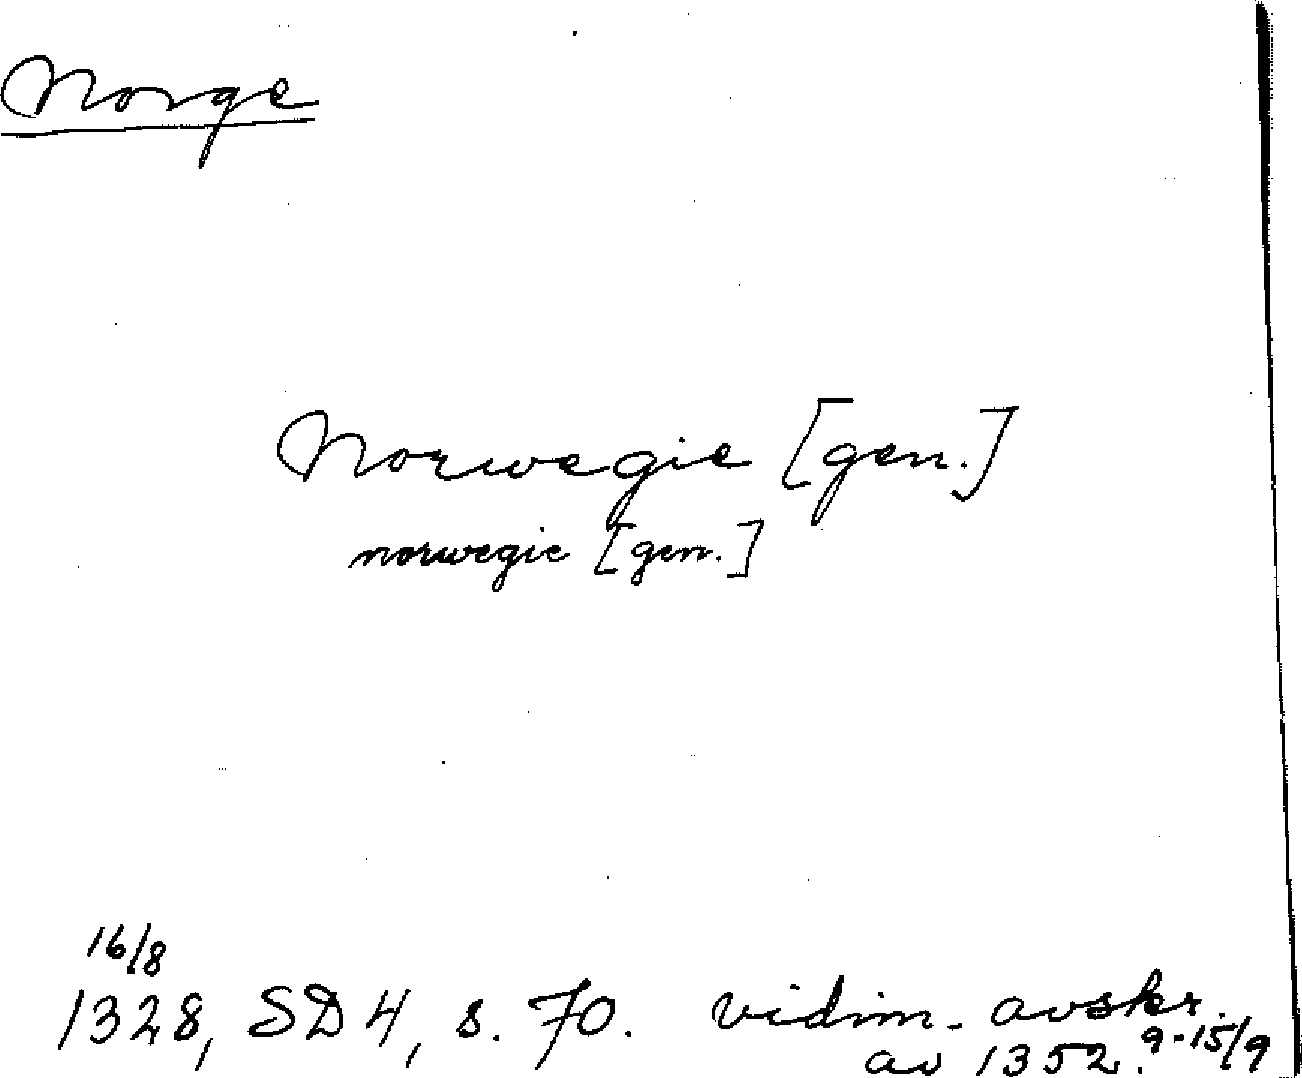 Norge
Norwegie [gen.]
norwegie [gen.]
16/8
1328, SD 4, s. 70. vidim. avskr.
av 1352. 9-15/9